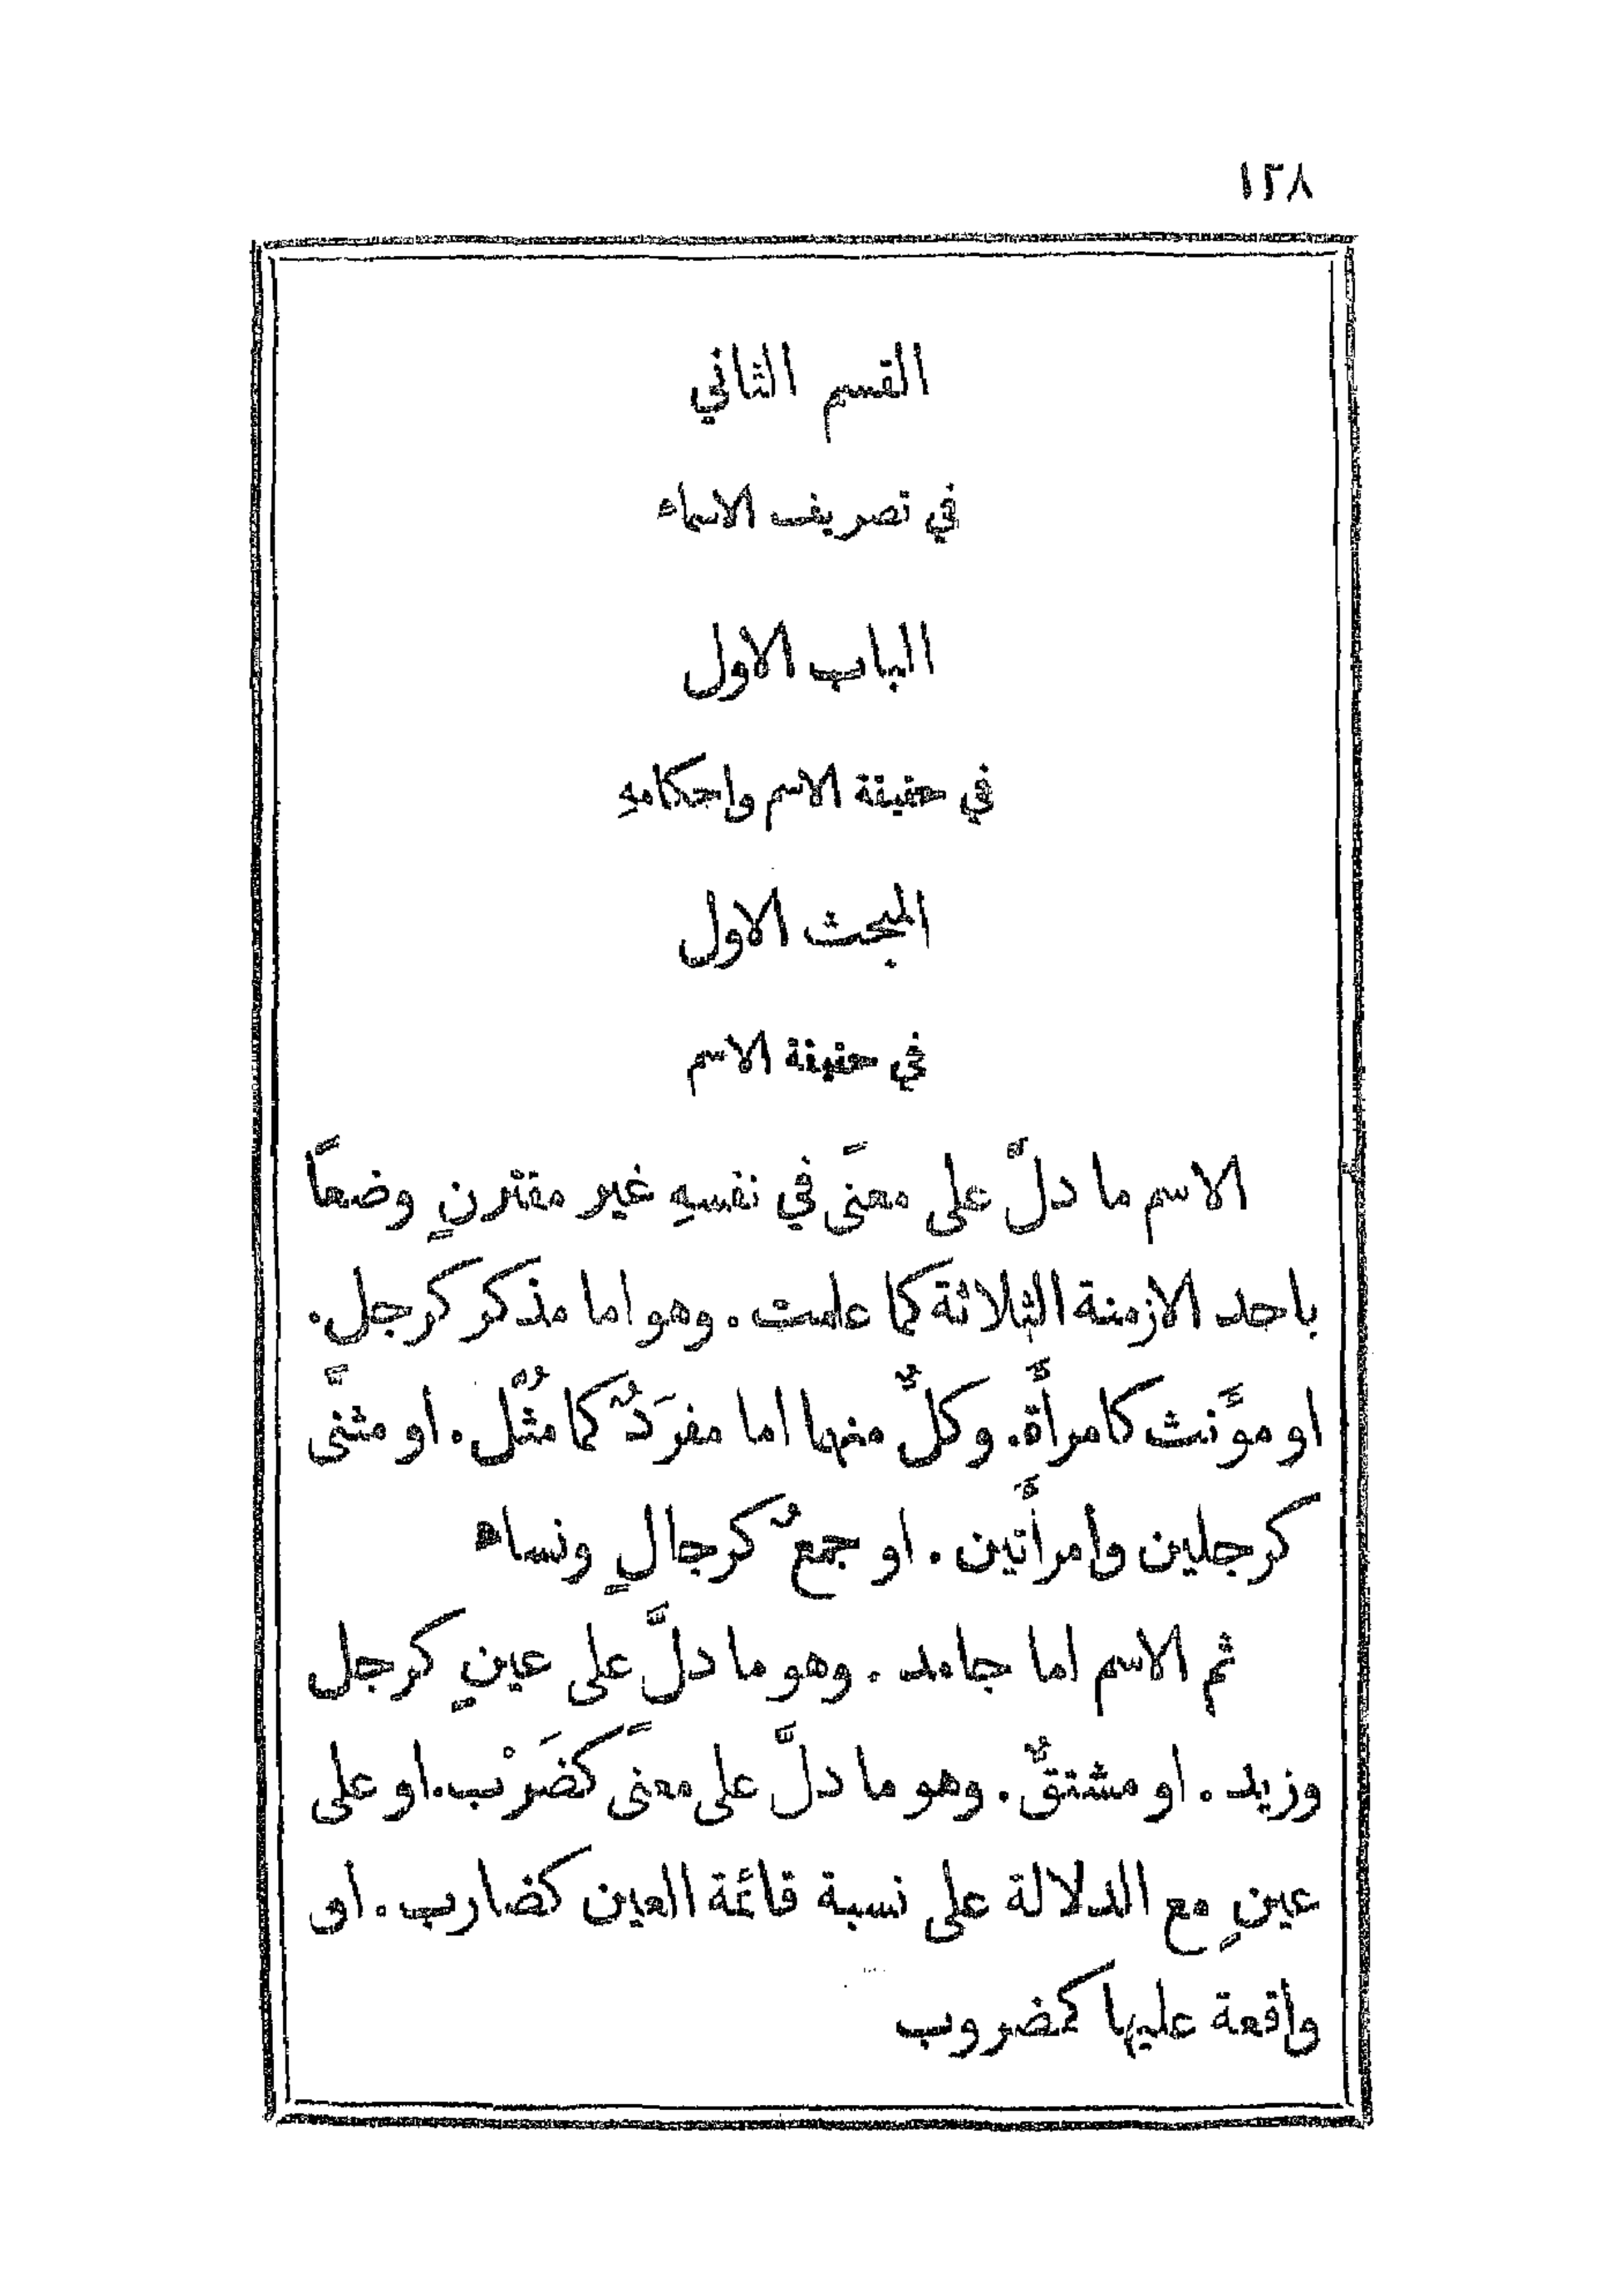 ١٣٨
القسم الثاني
في تصريف الاسماء
الباب الاول
في حقيقة الاسم واحكامهِ
المبحث الاول
في حقيقة الاسم
الاسم ما دلَّ على معنًى في نفسهِ غير مقترنٍ وضعًا
باحد الازمنة الثلاثة كما علمت . وهو اما مذكر كرجل .
او مؤَنث كامرأَة. وكلٌّ منهما اما مفرَدٌ كما مُثّل . او مثنًّى
كرجلين وأمرأَتين . او جمعٌ كرجالٍ ونساء
ثم الاسم اما جامد . وهو ما دلَّ على عينٍ كرجل
وزيد . او مشتقٌّ . وهو ما دلَّ على معنًى كضَرْب. او على
عينٍ مع الدلالة على نسبة قائمة العين كضارب . او
واقعة عليها كمضروب